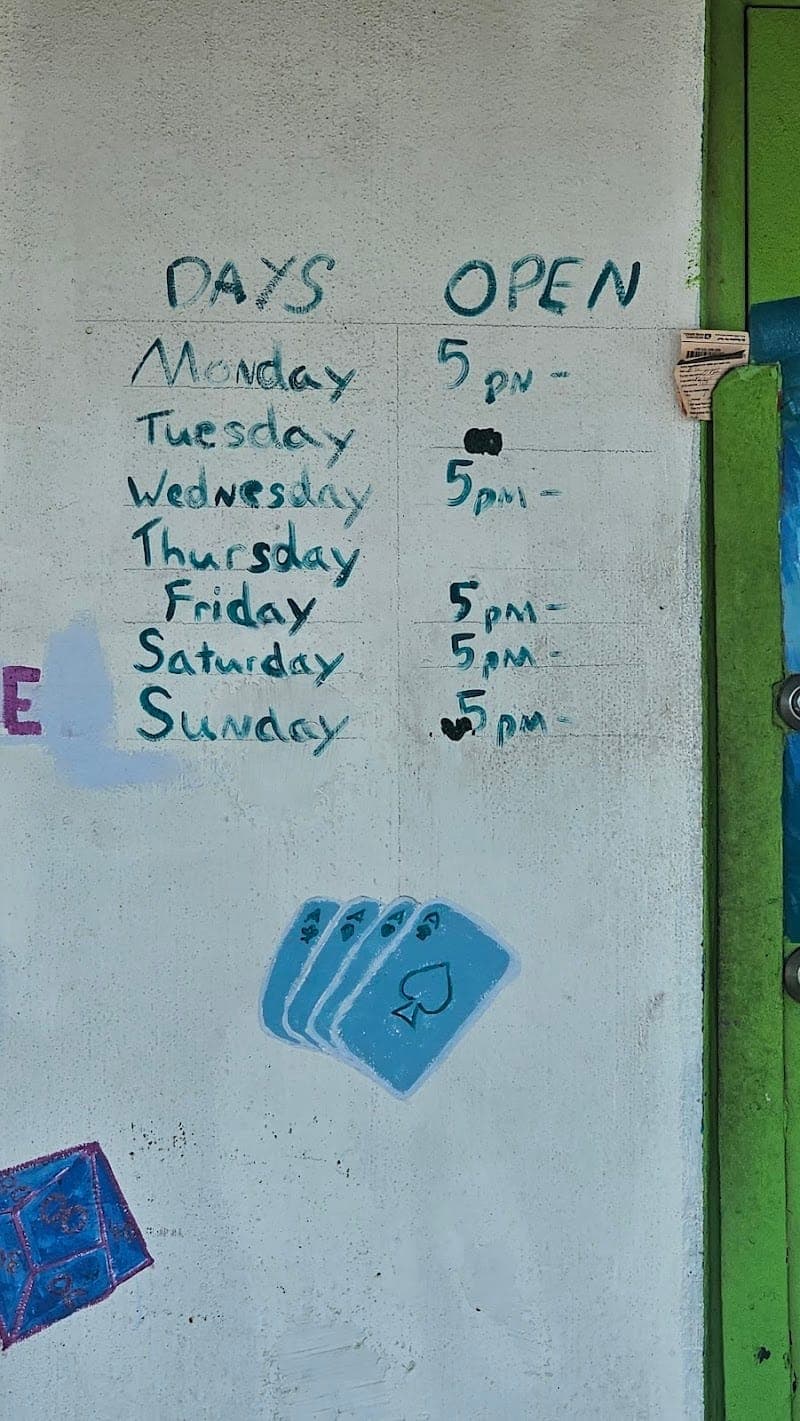 DAYS OPEN
Monday 5 pm -
Tuesday
Wednesday 5pm -
Thursday
Friday 5pm -
Saturday 5pm -
Sunday 5pm -
E
A A A A